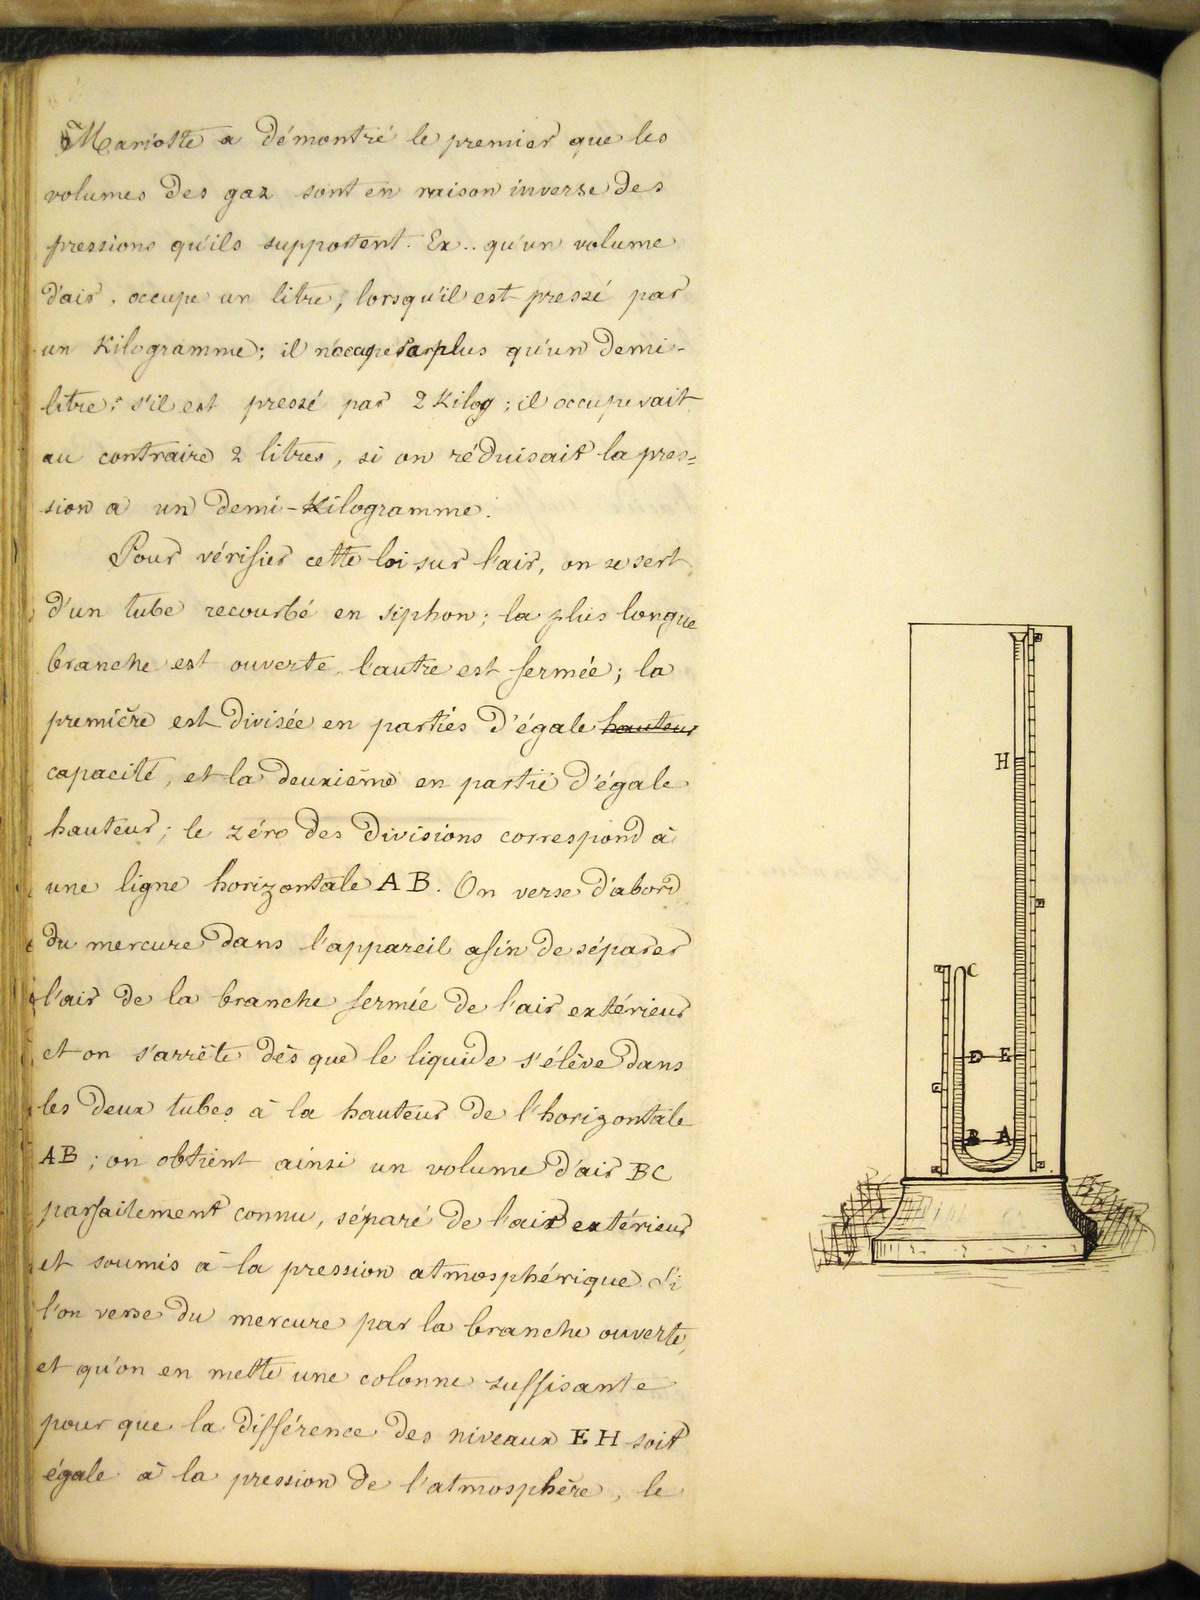 Mariotte a démontré le premier que les
volumes des gaz sont en raison inverse des
pressions qu'ils supportent. Ex.. qu'un volume
d'air, occupe un litre, lorsqu'il est pressé par
un Kilogramme; il n'occupera plus qu'un demi-
litre, s'il est pressé par 2 Kilog; il occuperait
au contraire 2 litres, si on réduisait la pres=
sion a un demi-Kilogramme.
Pour vérifier cette loi sur l'air, on se sert
d'un tube recourbé en siphon; la plus longue
branche est ouverte, l'autre est fermée; la
première est divisée en parties d'égale hauteur
capacité, et la deuxième en partie d'égale
hauteur; le zéro des divisions correspond à
une ligne horizontale AB. On verse d'abord
du mercure dans l'appareil afin de séparer
l'air de la branche fermée de l'air extérieur
et on s'arrête dès que le liquide s'élève dans
les deux tubes à la hauteur de l'horizontale
AB; on obtient ainsi un volume d'air BC
parfaitement connu, séparé de l'air extérieur
et soumis à la pression atmosphérique. Si
l'on verse du mercure par la branche ouverte,
et qu'on en mette une colonne suffisante
pour que la différence des niveaux EH soit
égale à la pression de l'atmosphère, le
H
C
D E
B A